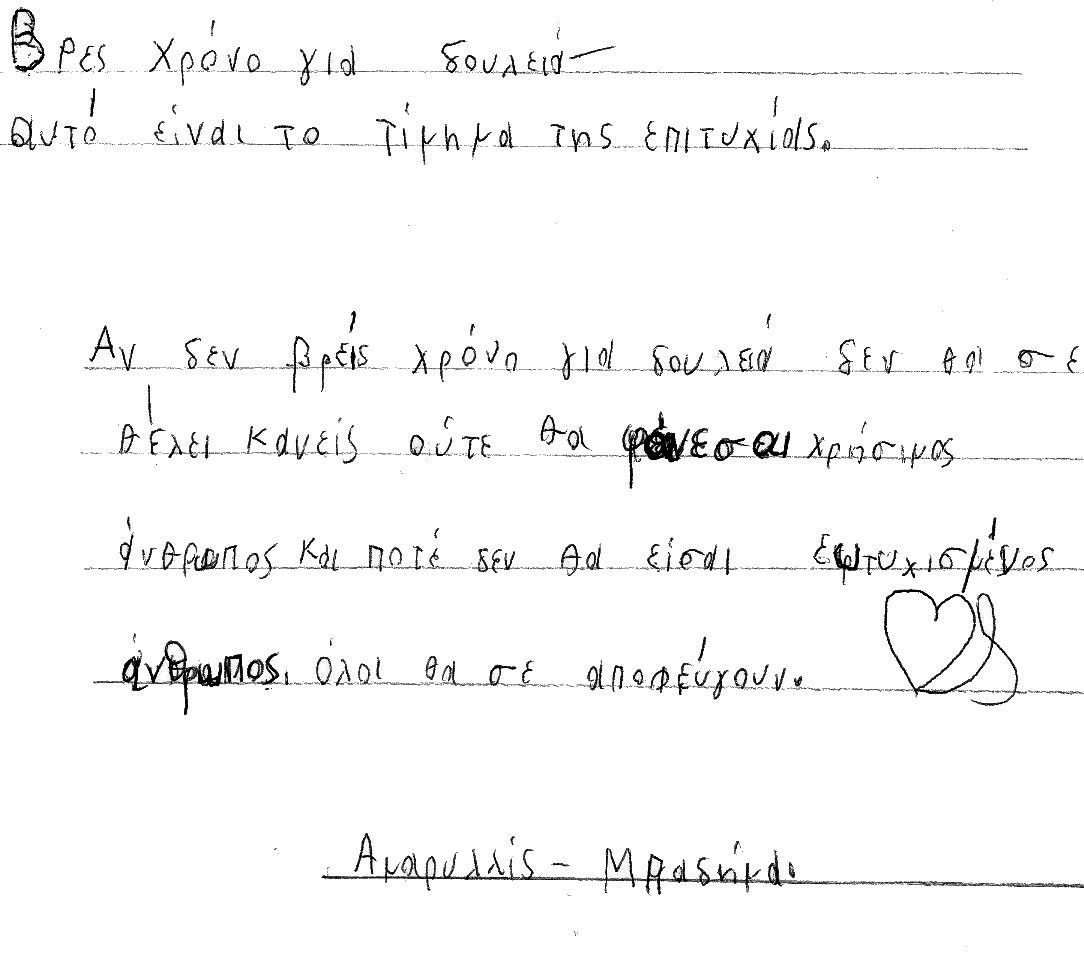 Βρες χρόνο για δουλειά—
αυτό είναι το τίμημα της επιτυχίας.
Αν δεν βρείς χρόνο για δουλειά δεν θα σε
θέλει κανείς ούτε θα φάνεσαι χρήσιμος
άνθρωπος και ποτέ δεν θα είσαι ευτυχισμένος
άνθρωπος. όλοι θα σε αποφεύγουν.
Αμαρυλλίς - Μπαδήμα.